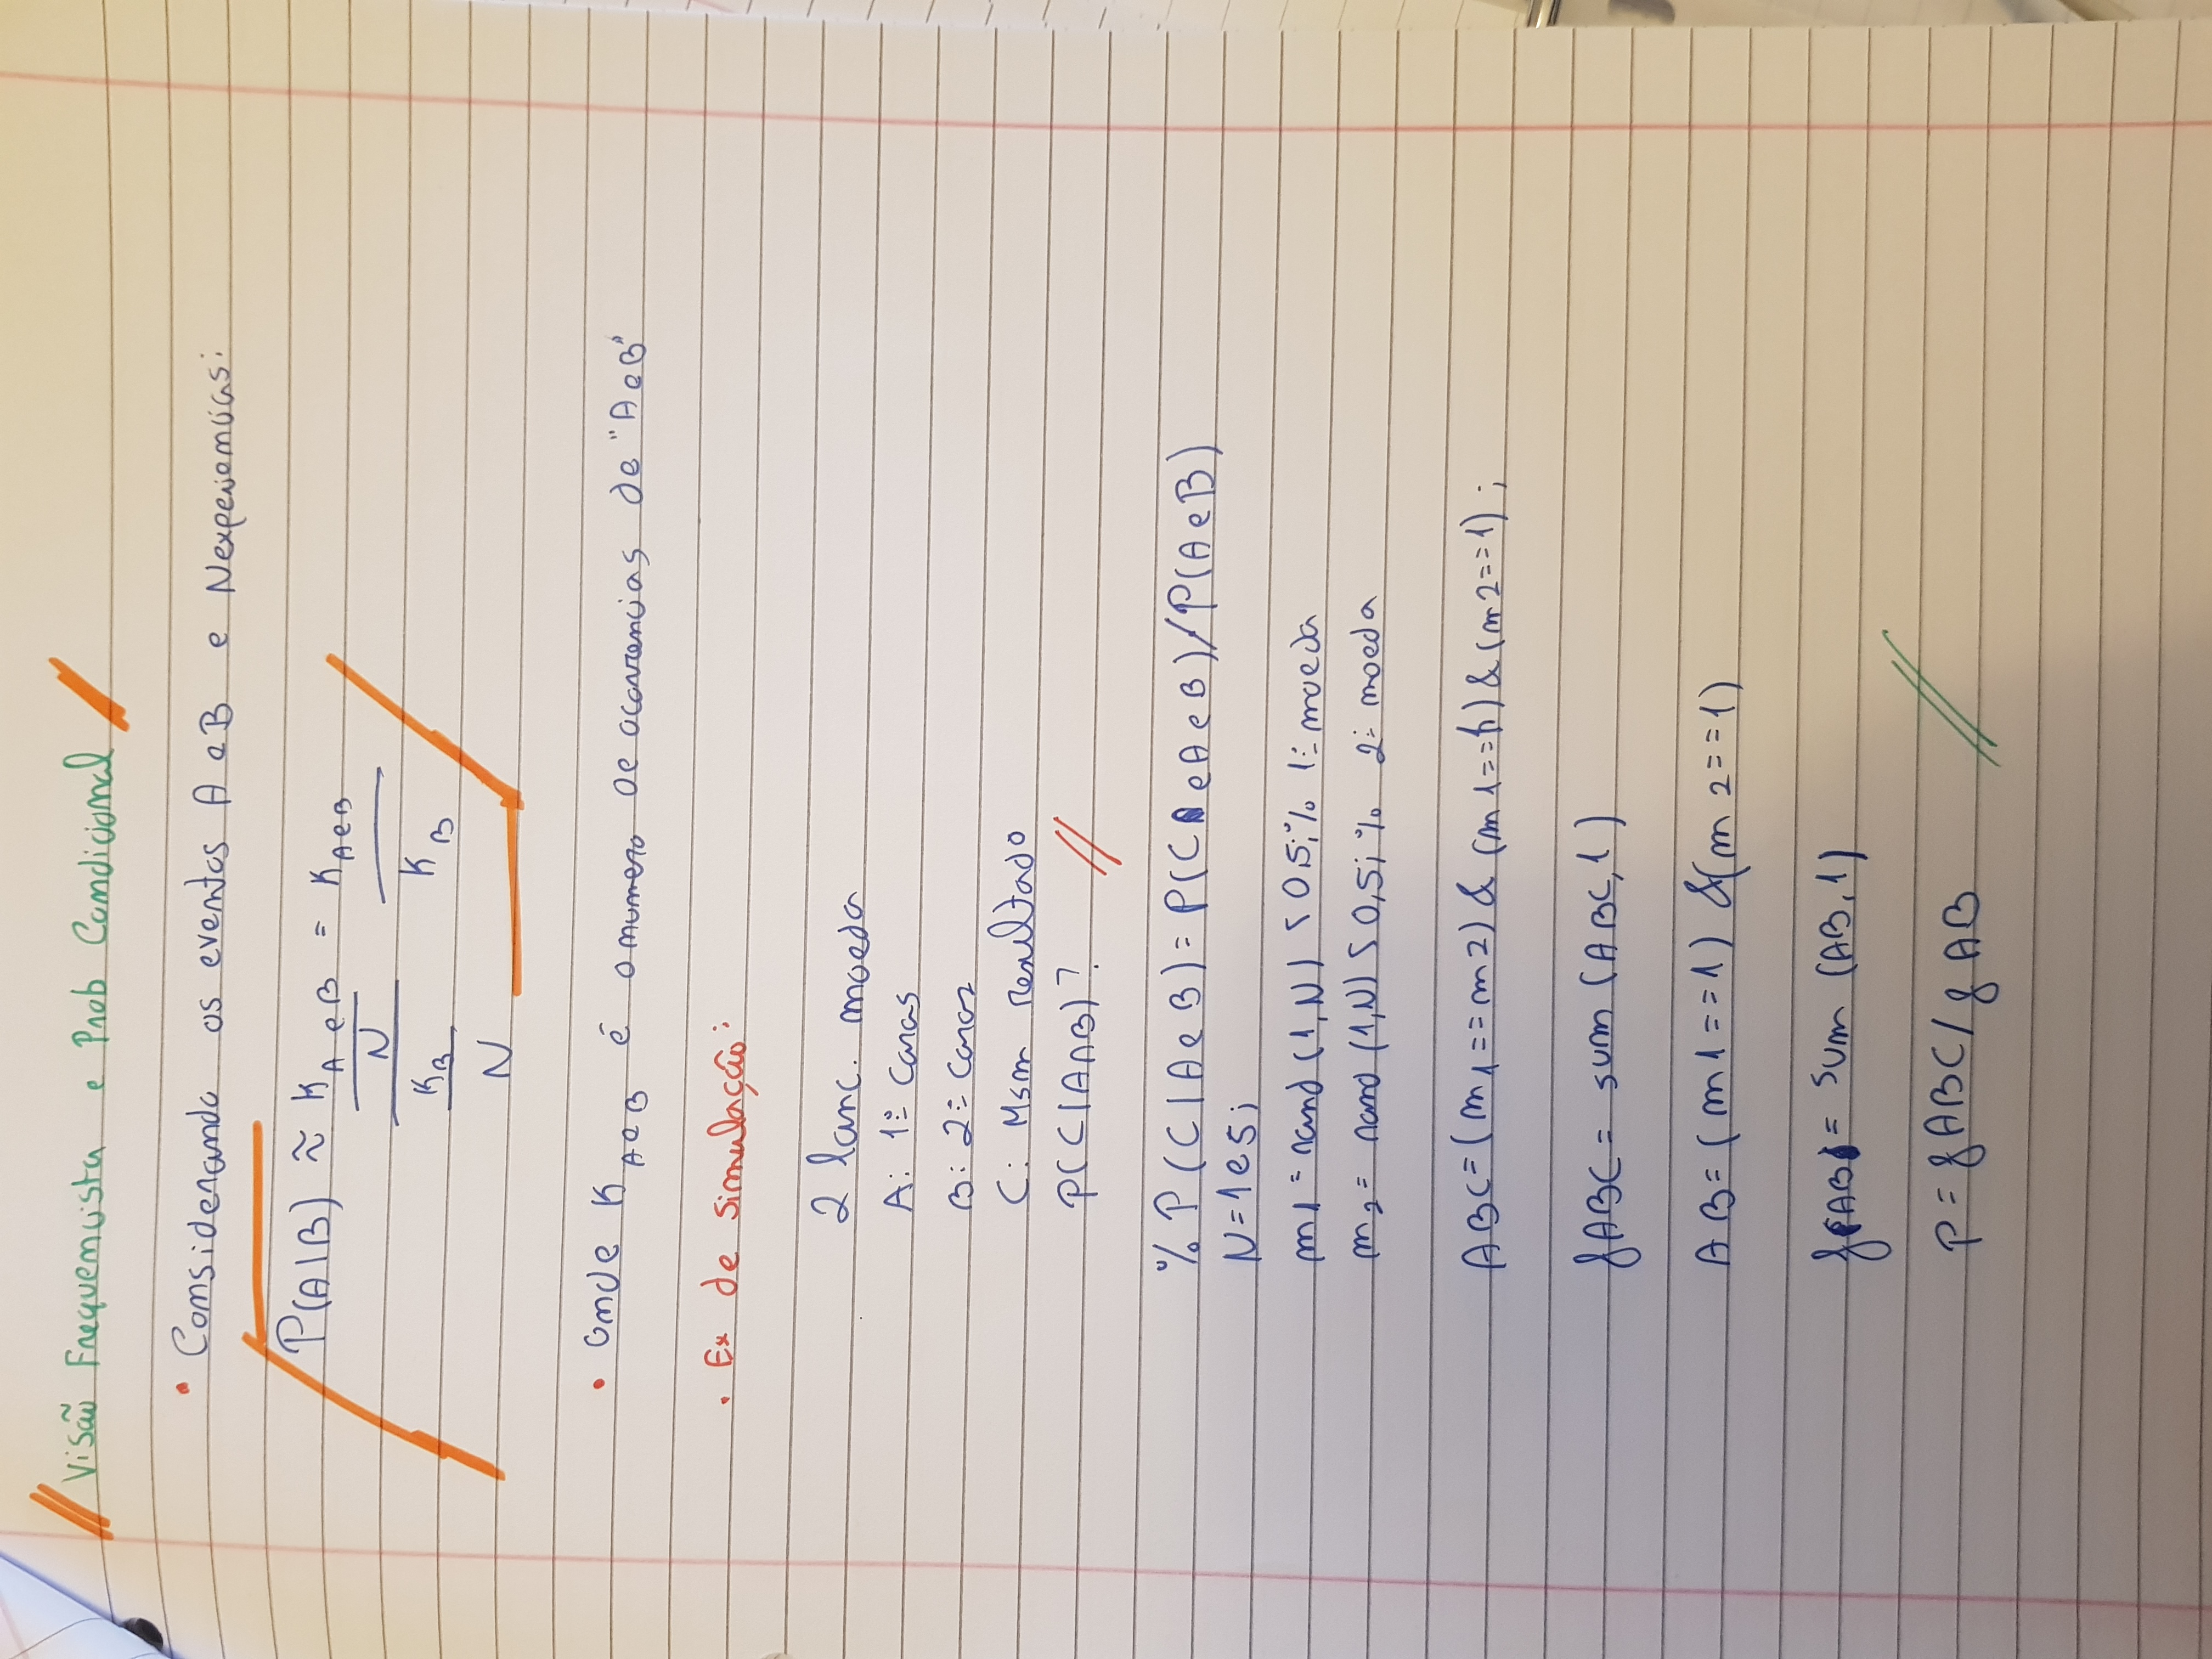 Visão Frequencista e Prob Condicional
• Considerando os eventos A e B e N experiencias:
P(A|B) ≈ K A e B = K A e B
N
K B K B
N
• Onde K A e B é o numero de ocorrencias de "A e B"
• Ex de simulação:
2 lanc. moeda
A: 1º Caras
B: 2º Caras
C: Msm resultado
P(C|A∩B)?
% P(C|A e B) = P(C e A e B)/P(A e B)
N=1e5;
m1 = rand(1,N) < 0,5;% 1º moeda
m2 = rand(1,N) < 0,5;% 2º moeda
ABC=(m1==m2) & (m1==1) & (m2==1);
fABC = sum(ABC,1)
AB=(m1==1) &(m2==1)
fAB = sum(AB,1)
p = fABC/fAB